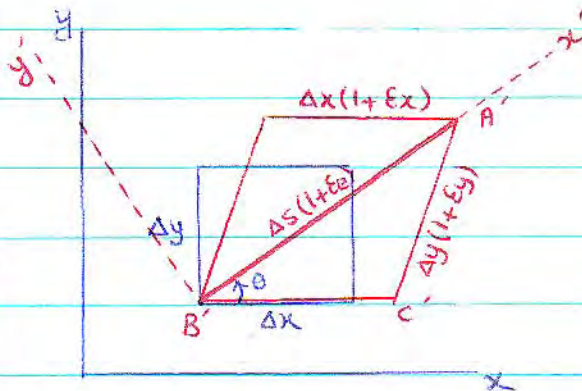 y
y'
x'
Δx(1+εx)
A'
Δs(1+εθ)
Δy(1+εy)
Δy
θ
B'
Δx
C'
x